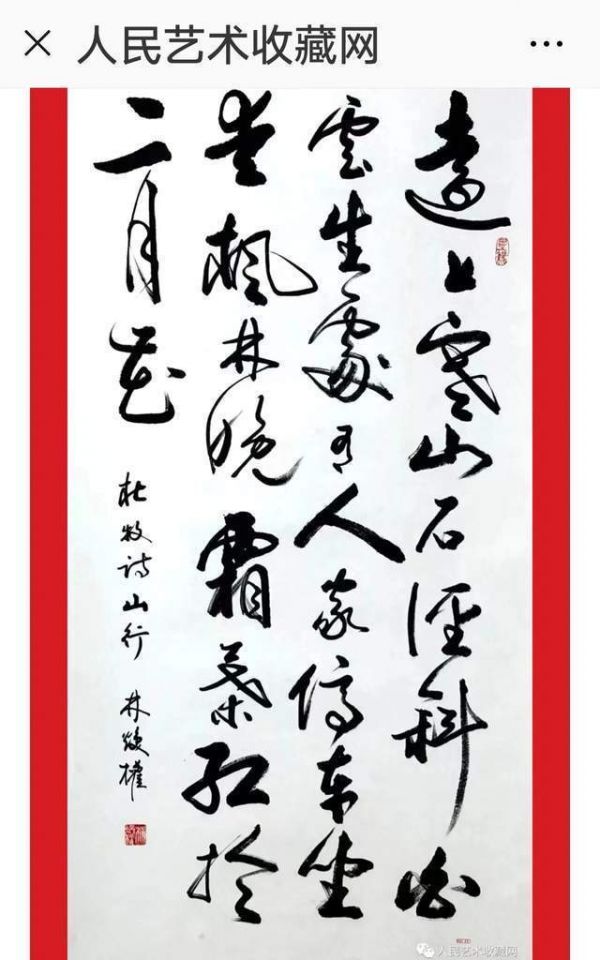 人民艺术收藏网
遠上寒山石徑斜白
雲生處有人家停車坐
愛楓林晚霜葉紅於
二月花
杜牧诗山行 林焕權
人民艺术收藏网